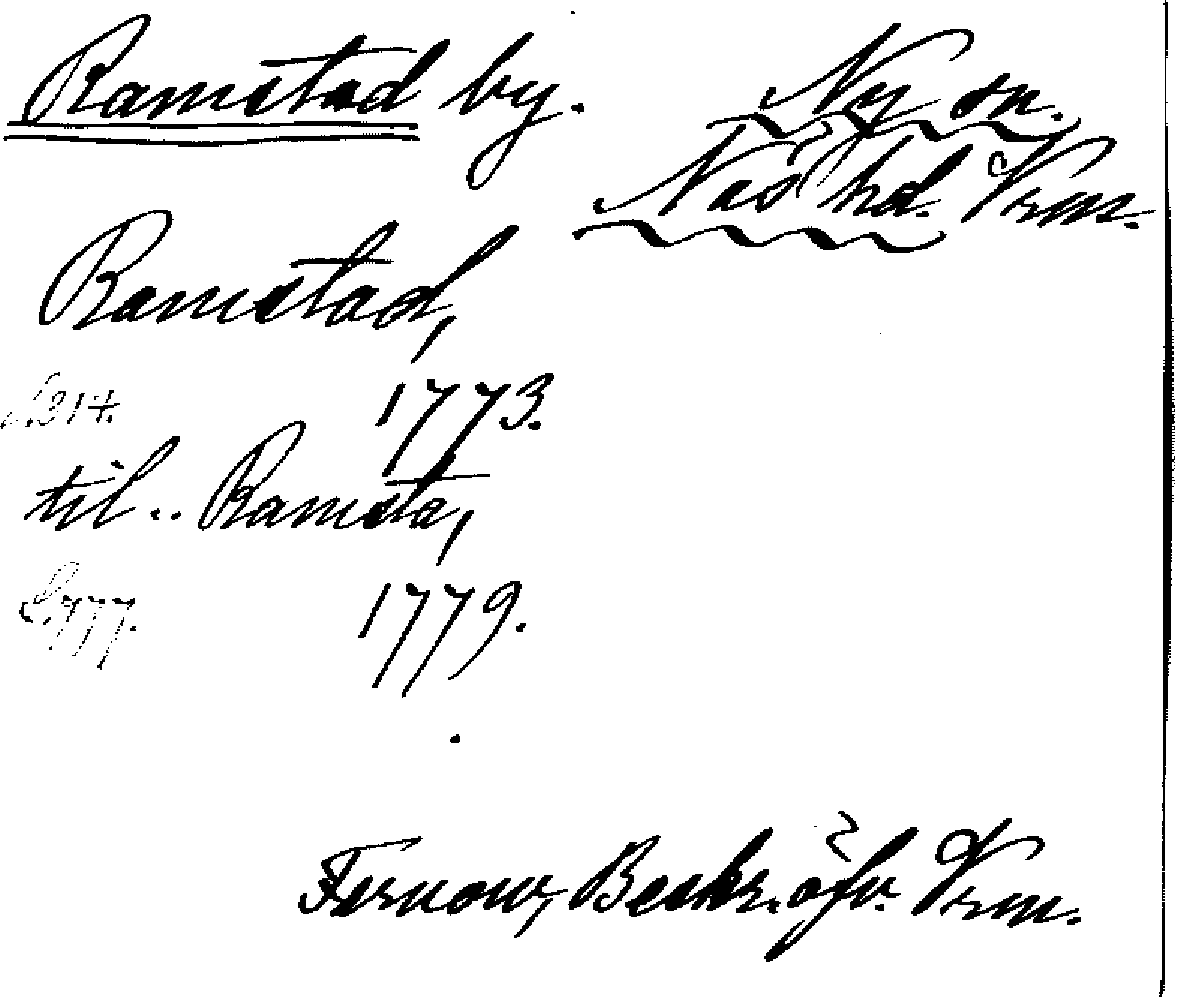 Ramstad by.
Ny sn.
Näs hd. Vrm.
Ramstad,
S. 314. 1773.
til .. Ramsta,
S. 777. 1779.
Fernow, Beskr. öfv. Vrm.